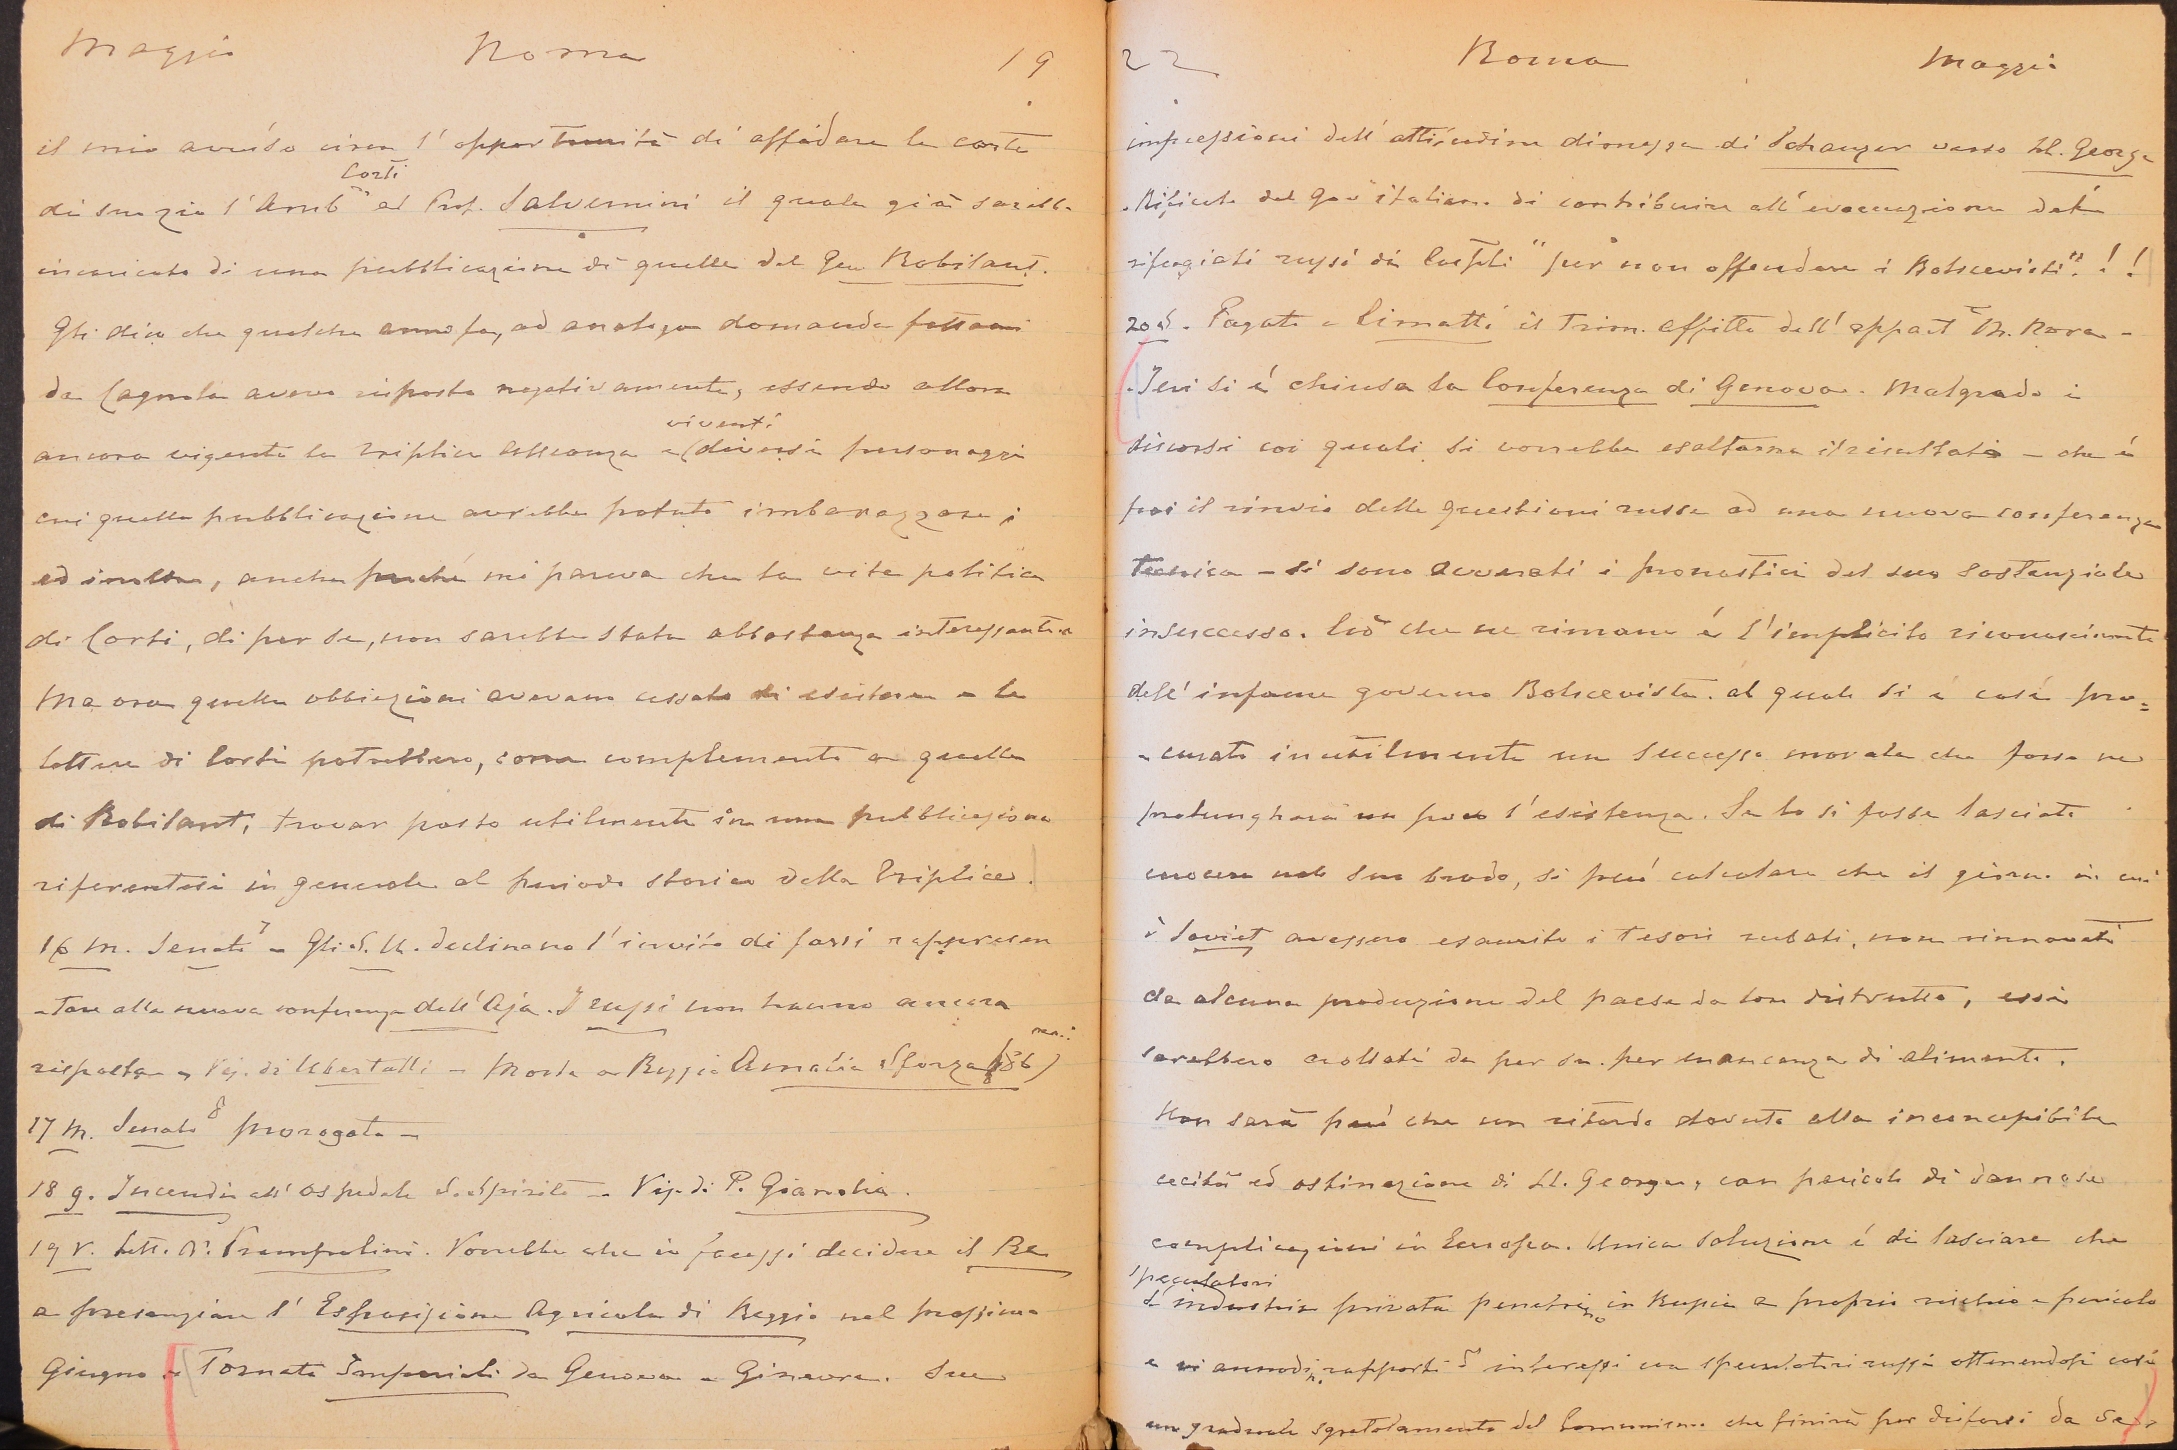 Maggio Roma 19
il mio avviso circa l'opportunità di affidare le carte
Corti
di suo zio l'Ambre al Prof. Salvemini il quale già sarebbe
incaricato di una pubblicazione di quelle del Gen Robilant.
Gli dico che qualche anno fa, ad analoga domanda fattami
da Cagnola avevo risposto negativamente, essendo allora
viventi
ancora vigente la Triplice Alleanza e (diversi personaggi
cui quella pubblicazione avrebbe potuto imbarazzare;
ed inoltre, anche perché mi pareva che la vita politica
di Corti, di per se, non sarebbe stata abbastanza interessante.
Ma ora quelle obbiezioni avevano cessato di esistere e le
lettere di Corti potrebbero, come complemento a quelle
di Robilant, trovar posto utilmente in una pubblicazione
riferentesi in generale al periodo storico della Triplice.
16 m. Senato 7 - Gli S. U. declinano l'invito di farsi rappresen
-tare alla nuova conferenza dell'Aja. I russi non hanno ancora
risposto - Vis. di Ubertalli - Morta a Reggio Amalia Sforza
17 M. Senato 8 prorogato -
18 g. Incendio all'Ospedale S. Spirito - Vis. di P. Gianolio.
19 V. Lett. On. Prampolini. Vorrebbe che io facessi decidere il Re
a presenziare l'Esposizione Agricola di Reggio nel prossimo
Giugno - Tornato Imperiali da Genova e Ginevra. Sue
22 Roma Maggio
impressioni dell'attitudine dimessa di Schanzer verso Ll. George
Rifiuto del Govo italiano di contribuire all'evacuazione dei
rifugiati russi di Cospoli "per non offendere i Bolscevichi"!!
20 S. Pagato a Cimatti il Trim. affitto dell'appart. M. Nova -
Ieri si è chiusa la Conferenza di Genova. Malgrado i
discorsi coi quali si vorrebbe esaltarne il risultato - che è
poi il rinvio delle questioni russe ad una nuova conferenza
Tecnica - si sono avverati i pronostici del suo sostanziale
insuccesso. Ciò che ne rimane è l'implicito riconoscimento
dell'infame governo Bolscevista. al quale si è così pro=
-curato inutilmente un successo morale che forse ne
prolungherà un poco l'esistenza. Se lo si fosse lasciato
cuocere nel suo brodo, si può calcolare che il giorno in cui
i Soviet avessero esaurito i tesori rubati, non rinnovati
da alcuna produzione del paese da loro distrutto, essi
sarebbero crollati da per se. per mancanza di alimento.
Non sarà più che un ritardo dovuto alla inconcepibile
cecità ed ostinazione di Ll. George, con pericolo di dannose
complicazioni in Europa. Unica soluzione è di lasciare che
speculatori
l'industria privata penetrino in Russia a proprio rischio e pericolo
e vi annodino rapporti d'interessi con speculatori russi ottenendosi così
un graduale sgretolamento del Comunismo che finirà per disfarsi da se.